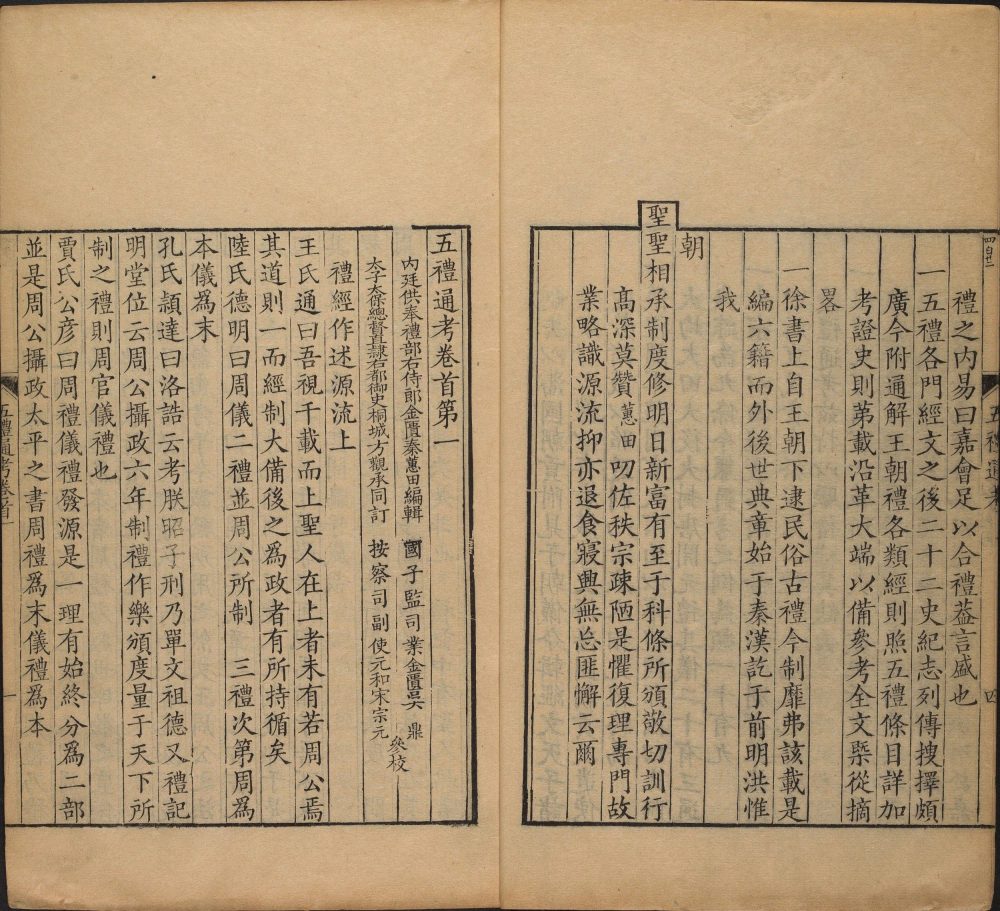 禮之内易曰嘉會足以合禮葢言盛也
一五禮各門經文之後二十二史紀志列傳搜擇頗
廣今附通解王朝禮各類經則照五禮條目詳加
考證史則苐載沿革大端以備參考全文槩從摘
畧
一徐書上自王朝下逮民俗古禮今制靡弗該載是
編六籍而外後世典章始于秦漢訖于前明洪惟
我
朝
聖聖相承制度修明日新富有至于科條所頒敬切訓行
髙深莫贊蕙田叨佐秩宗疎陋是懼復理專門故
業略識源流抑亦退食寢興無㤀匪懈云爾
五禮通考
四
五禮通考卷首第一
内廷供奉禮部右侍郎金匱秦蕙田編輯
國子監司業金匱吳鼎
太子太保總督直隷右都御史桐城方觀承同訂
按察司副使元和宋宗元
參校
禮經作述源流上
王氏通曰吾視千載而上聖人在上者未有若周公焉
其道則一而經制大備後之為政者有所持循矣
陸氏德明曰周儀二禮並周公所制 三禮次第周為
本儀為末
孔氏頴達曰洛誥云考朕昭子刑乃單文祖德又禮記
明堂位云周公攝政六年制禮作樂頒度量于天下所
制之禮則周官儀禮也
賈氏公彦曰周禮儀禮發源是一理有始終分為二部
並是周公攝政太平之書周禮為末儀禮為本
五禮通考卷首一
一